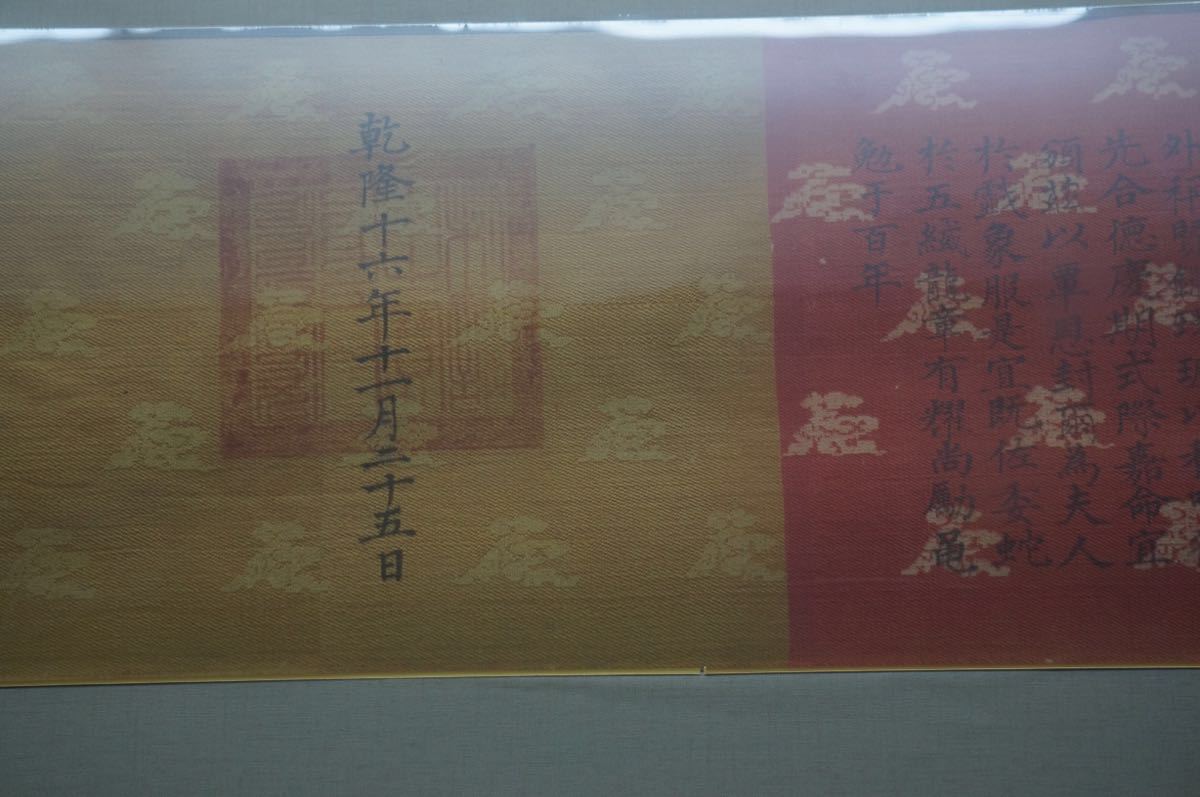 先合德慶期式際嘉命宜
頒玆以覃恩封爾為夫人
於戲象服是宜旣佐委蛇
於五緎龍章有耀尚勵黽
勉于百年
乾隆十六年十一月二十五日